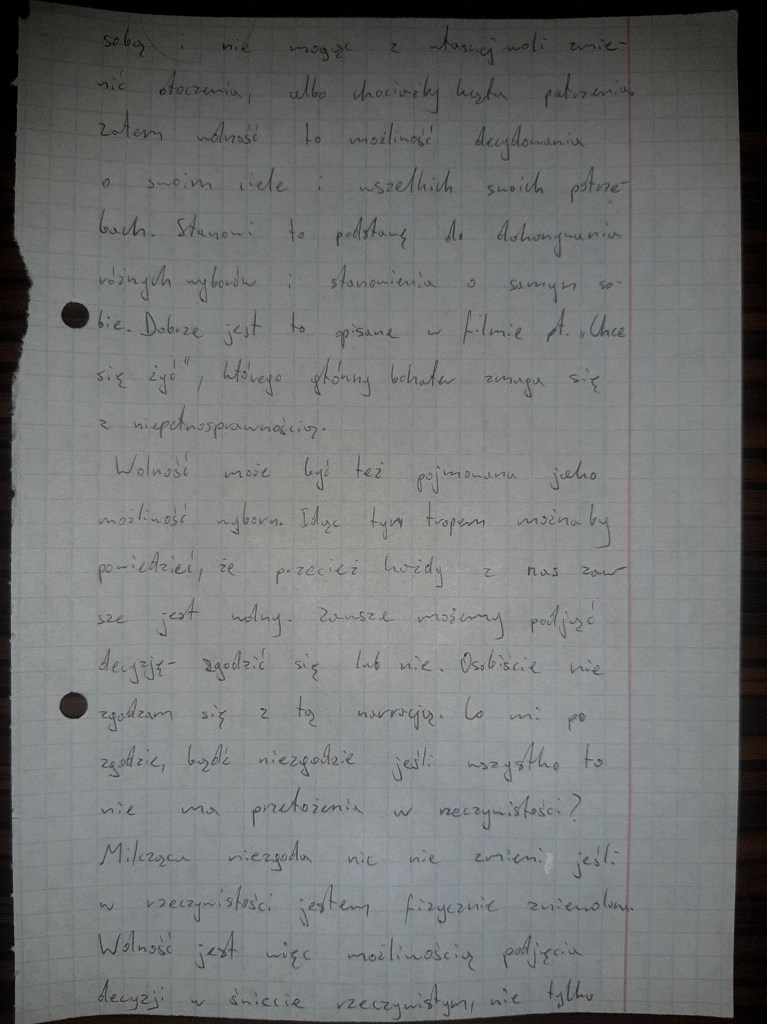 sobą i nie mogąc z własnej woli zmie-
nić otoczenia, albo chociażby kąta patrzenia.
Zatem wolność to możliwość decydowania
o swoim ciele i wszelkich swoich potrze-
bach. Stanowi to podstawę do dokonywania
różnych wyborów i stanowienia o samym so-
bie. Dobrze jest to opisane w filmie pt. „Chce
się żyć", którego główny bohater zmaga się
z niepełnosprawnością.
Wolność może być też pojmowana jako
możliwość wyboru. Idąc tym tropem można by
powiedzieć, że przecież każdy z nas zaw
sze jest wolny. Zawsze możemy podjąć
decyzję- zgodzić się lub nie. Osobiście nie
zgadzam się z tą narracją. Co mi po
zgodzie, bądź niezgodzie jeśli wszystko to
nie ma przełożenia w rzeczywistości?
Milcząca niezgoda nic nie zmieni jeśli
w rzeczywistości jestem fizycznie zniewolon
Wolność jest więc możliwością podjęcia
decyzji w świecie rzeczywistym, nie tylko